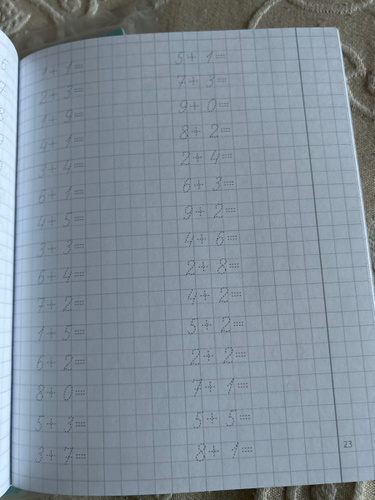 1+1=
2+3=
1+9=
4+1=
3+4=
6+1=
4+5=
3+3=
6+4=
7+2=
1+5=
6+2=
8+0=
5+3=
3+7=
5+1=
7+3=
9+0=
8+2=
2+4=
6+3=
9+2=
4+6=
2+8=
4+2=
5+2=
2+2=
7+1=
5+5=
8+1=
23